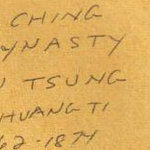 CHING
YNASTY
TSUNG
HUANG TI
62-1874